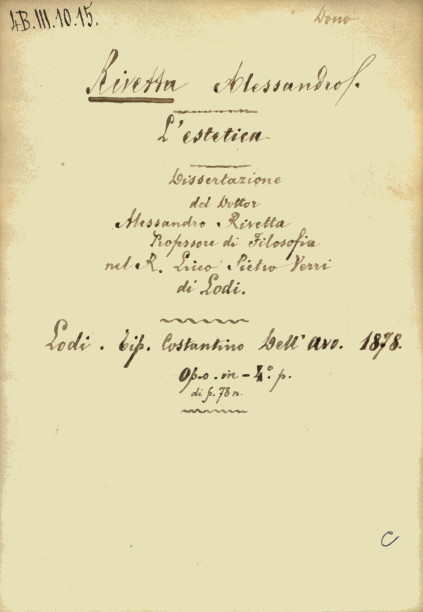 4B.III.10.15.
Dono
Rivetta Alessandro.
L'estetica
Dissertazione
del Dottor
Alessandro Rivetta
Professore di Filosofia
nel R. Liceo Pietro Verri
di Lodi.
Lodi. Tip. Costantino Dell'avo. 1878.
Opo. in-4º. p.
di p. 78 n.
C